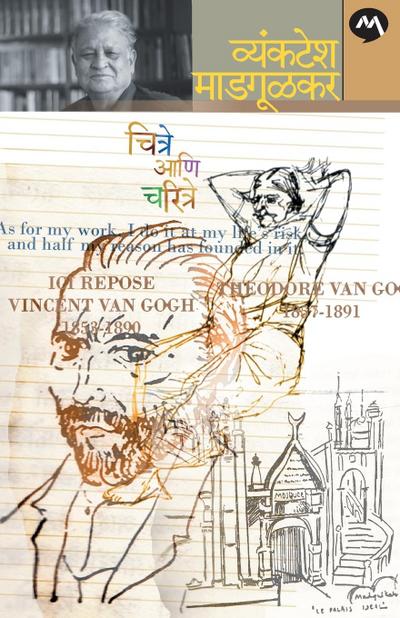 व्यंकटेश
माडगूळकर
चित्रे
आणि
चरित्रे
As for my work, I do it at my life's risk
and half my reason has founded in it
ICI REPOSE
VINCENT VAN GOGH
1853-1890
THEODORE VAN GOG
1857-1891
MOSQUEE
Madgulkar
"LE PALAIS IDEIL"